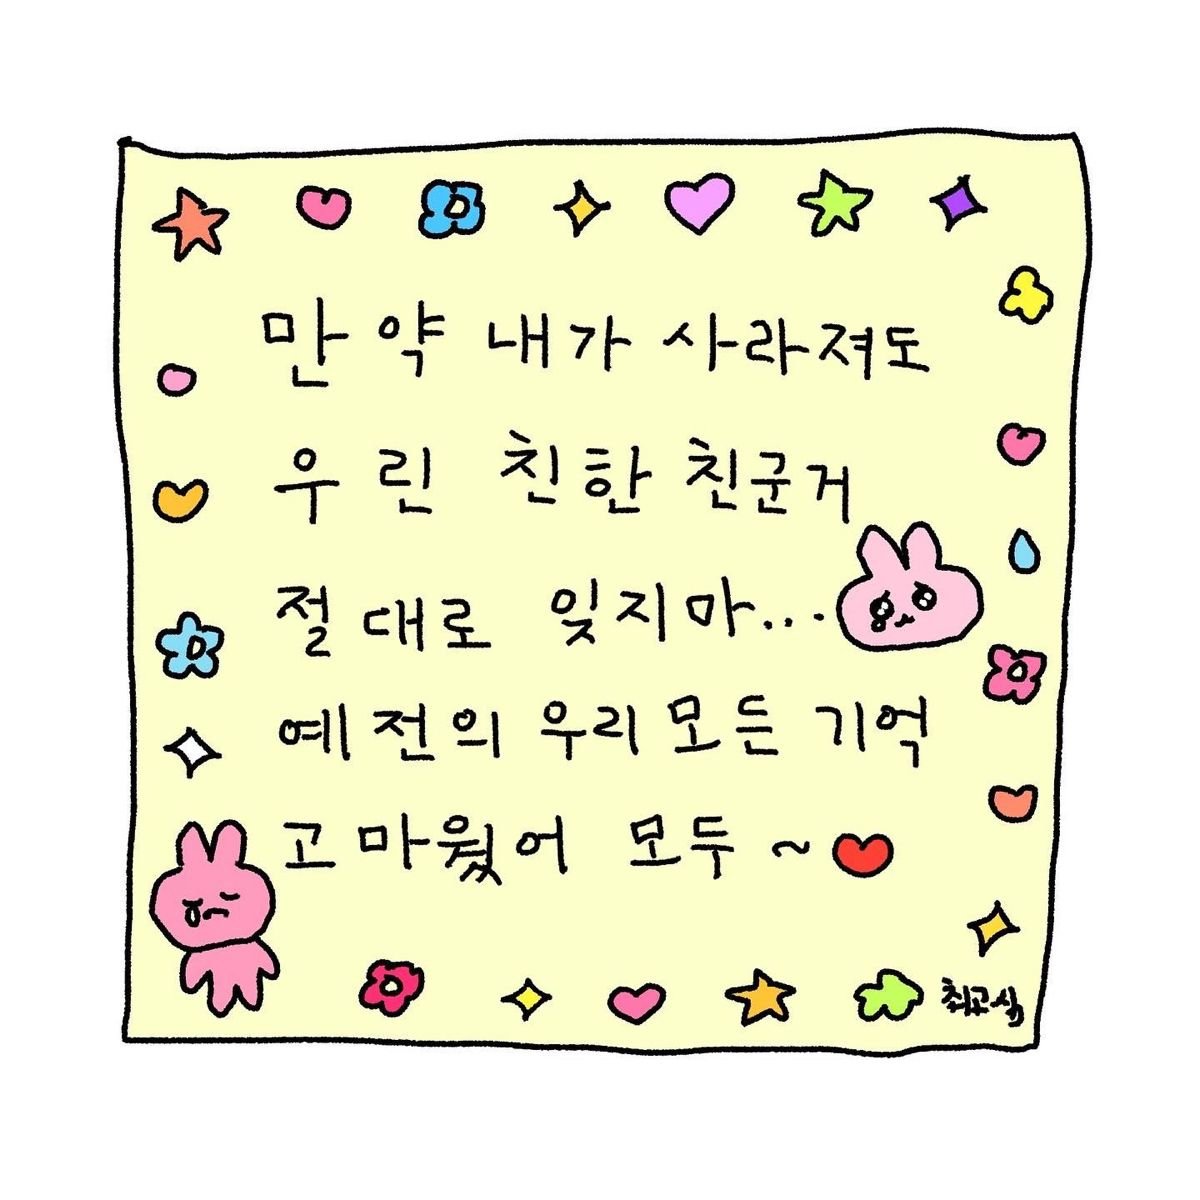 만약 내가 사라져도
우린 친한 친군거
절대로 잊지마...
예전의 우리 모든 기억
고마웠어 모두~
최고심